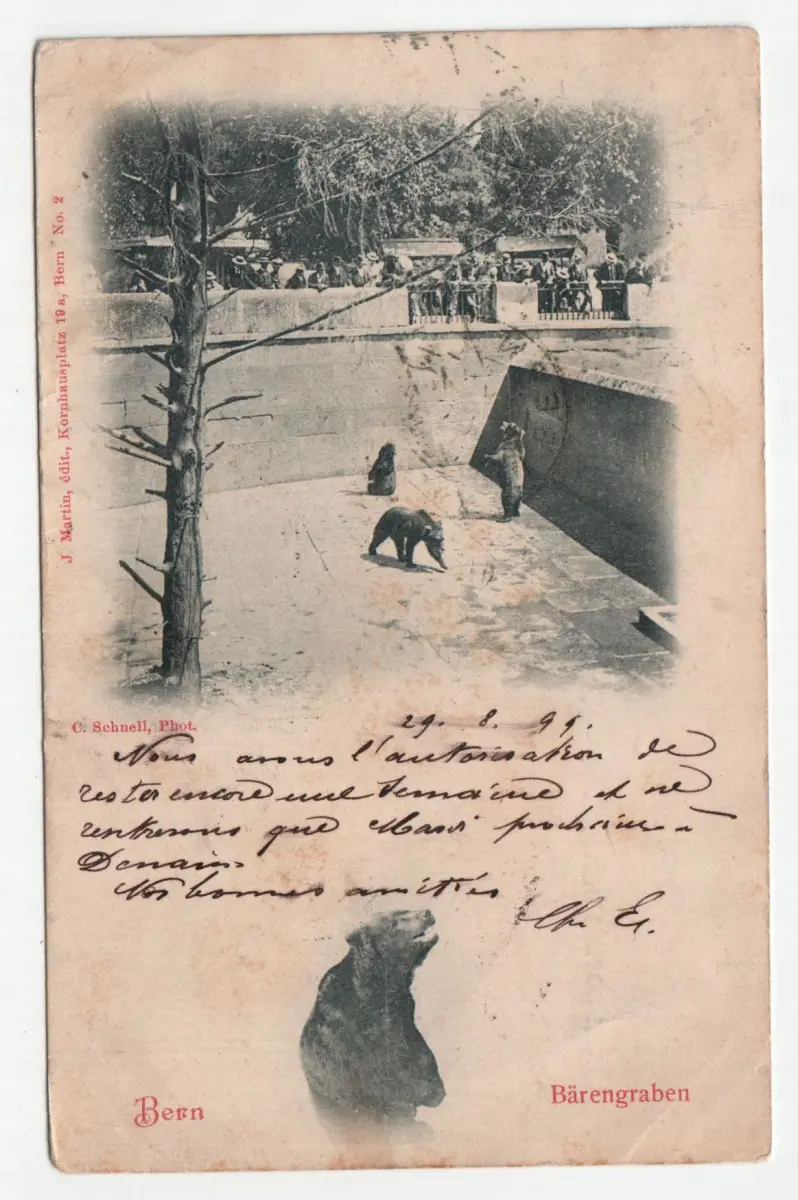 J. Martin, édit., Kornhausplatz 19a, Bern No. 2
C. Schnell, Phot.
29. 8. 99.
Nous avons l'autorisation de
rester encore une semaine et ne
rentrerons que Mardi prochain à
Denain
Nos bonnes amitiés
Ch. E.
Bern
Bärengraben